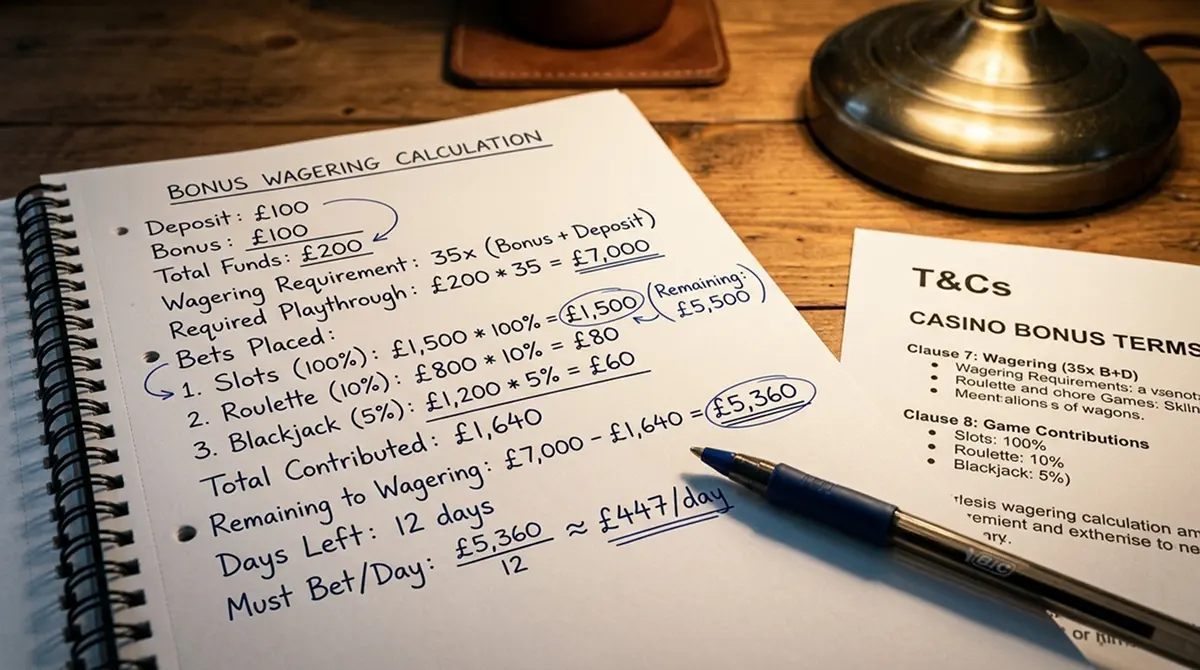 BONUS WAGERING CALCULATION
Deposit: £100
Bonus: £100
Total Funds: £200
Wagering Requirement: 35x (Bonus + Deposit)
Required Playthrough: £200 * 35 = £7,000
Bets Placed:
1. Slots (100%): £1,500 * 100% = £1,500 (Remaining: £5,500)
2. Roulette (10%): £800 * 10% = £80
3. Blackjack (5%): £1,200 * 5% = £60
Total Contributed: £1,640
Remaining to Wagering: £7,000 - £1,640 = £5,360
Days Left: 12 days
Must Bet/Day: £5,360 / 12 ≈ £447/day
T&Cs
CASINO BONUS TERMS
Clause 7: Wagering (35x B+D)
Wagering Requirements: a
Roulette and chore Games:
of wagons.
Clause 8: Game Contributions
Slots: 100%
Roulette: 10%
Blackjack: 5%)
wagering calculation
and exthenise to
BIC